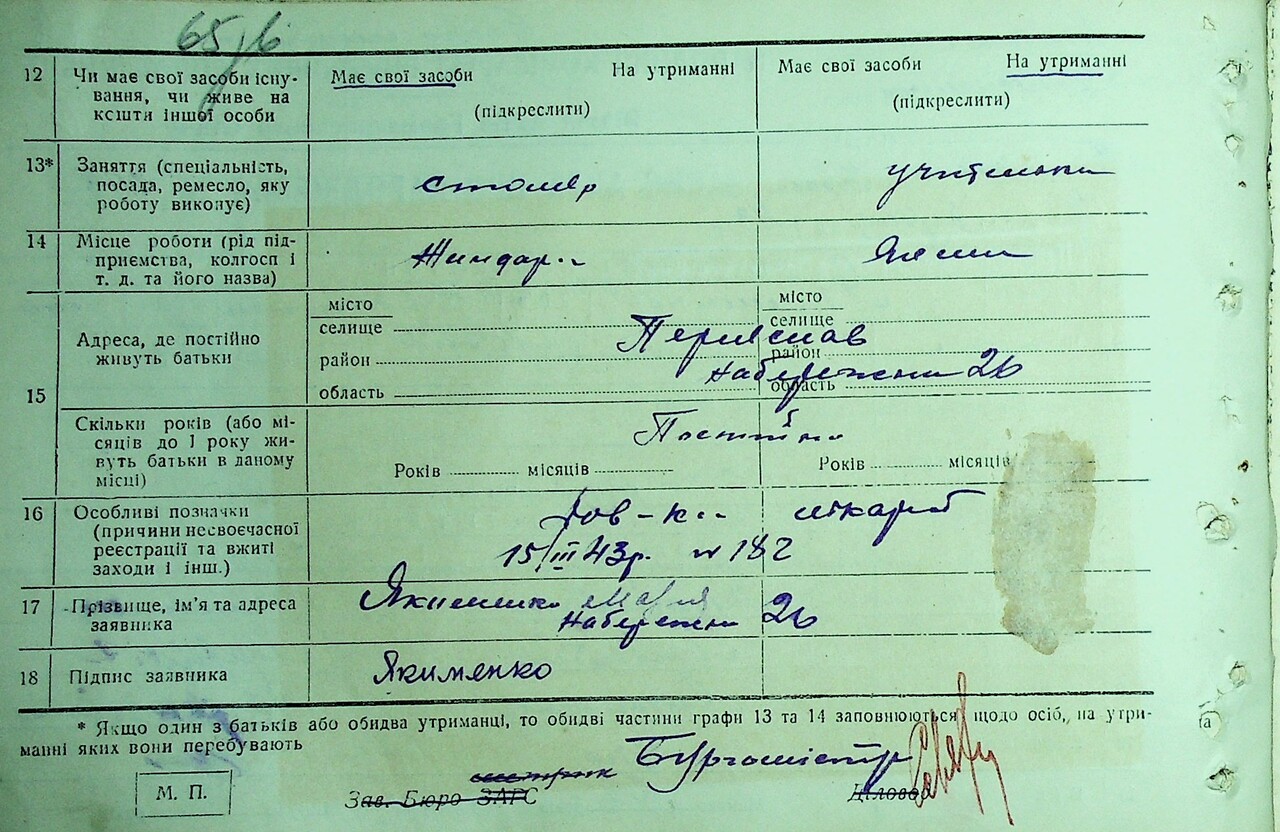 65/6
12 Чи має свої засоби існу- Має свої засоби На утриманні Має свої засоби На утриманні
вання, чи живе на (підкреслити) (підкреслити)
кошти іншої особи
13* Заняття (спеціальність, столяр учителька
посада, ремесло, яку
роботу виконує)
14 Місце роботи (рід під- Жандар.
приємства, колгосп і
т. д. та його назва)
15 Адреса, де постійно
живуть батьки
місто місто
селище селище
Переяслав
район район
Набережна 26
область область
Скільки років (або мі- Постійно
сяців до 1 року жи-
вуть батьки в даному
місці)
Років місяців Років місяців
16 Особливі позначки Дов-ка лікаря
(причини несвоєчасної 15/III 43р. N 182
реєстрації та вжиті
заходи і інш.)
17 Прізвище, ім’я та адреса Якименко Марія
заявника Набережна 26
18 Підпис заявника Якименко
* Якщо один з батьків або обидва утриманці, то обидві частини графи 13 та 14 заповнюються щодо осіб, на утри-
манні яких вони перебувають
Бургомістр
М. П. Зав. Бюро ЗАГС Діловод